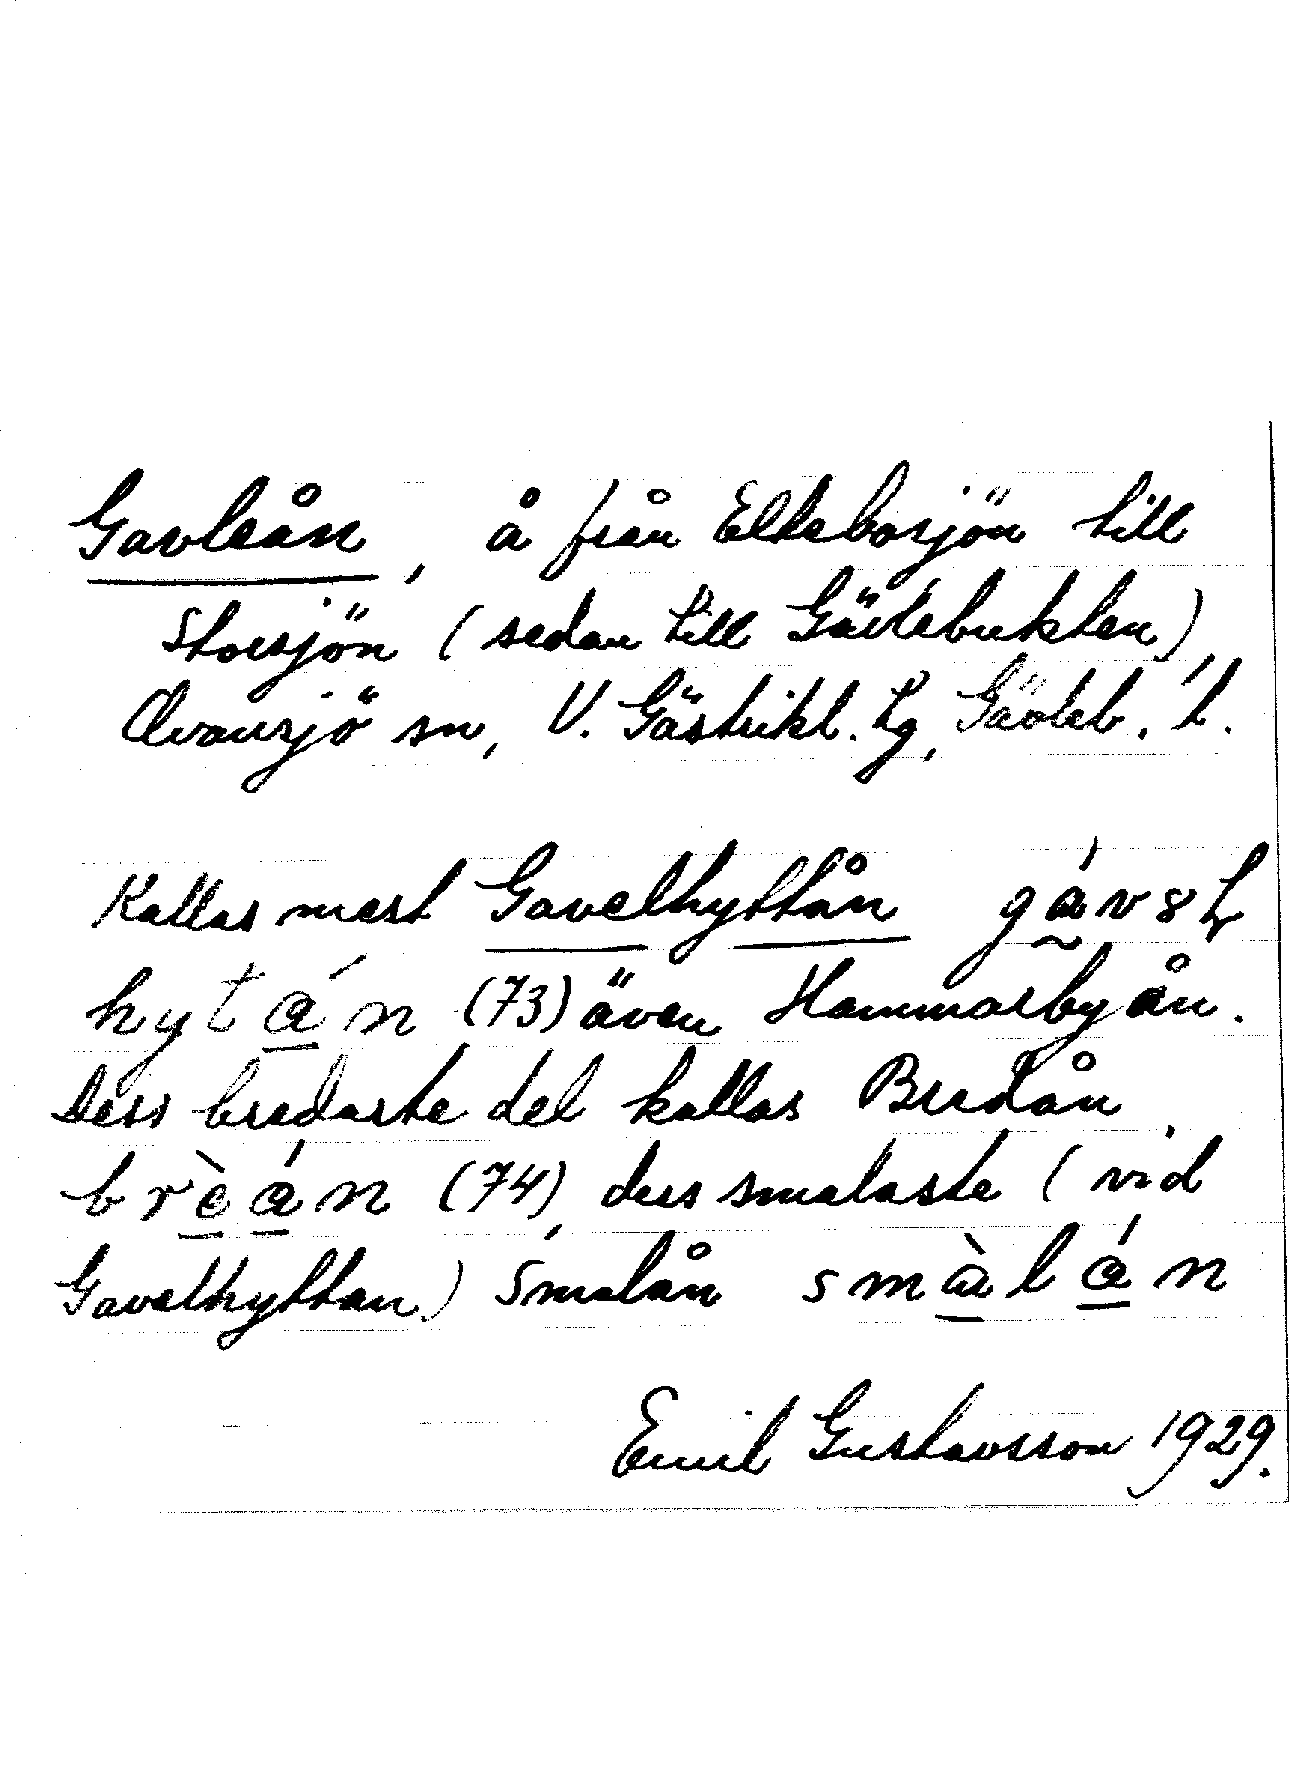 Gavleån, å från Elkebosjön till
Storsjön (sedan till Gävlebukten),
Ovansjö sn, V. Gästrikl. tg, Gävleb. l.
Kallas mest Gavelhyttån gávəł
hytán (73) även Hammarbyån.
Dess bredaste del kallas Bredån,
brèán (74), dess smalaste (vid
Gavelhyttan) Smalån smàlán
Emil Gustavsson 1929.